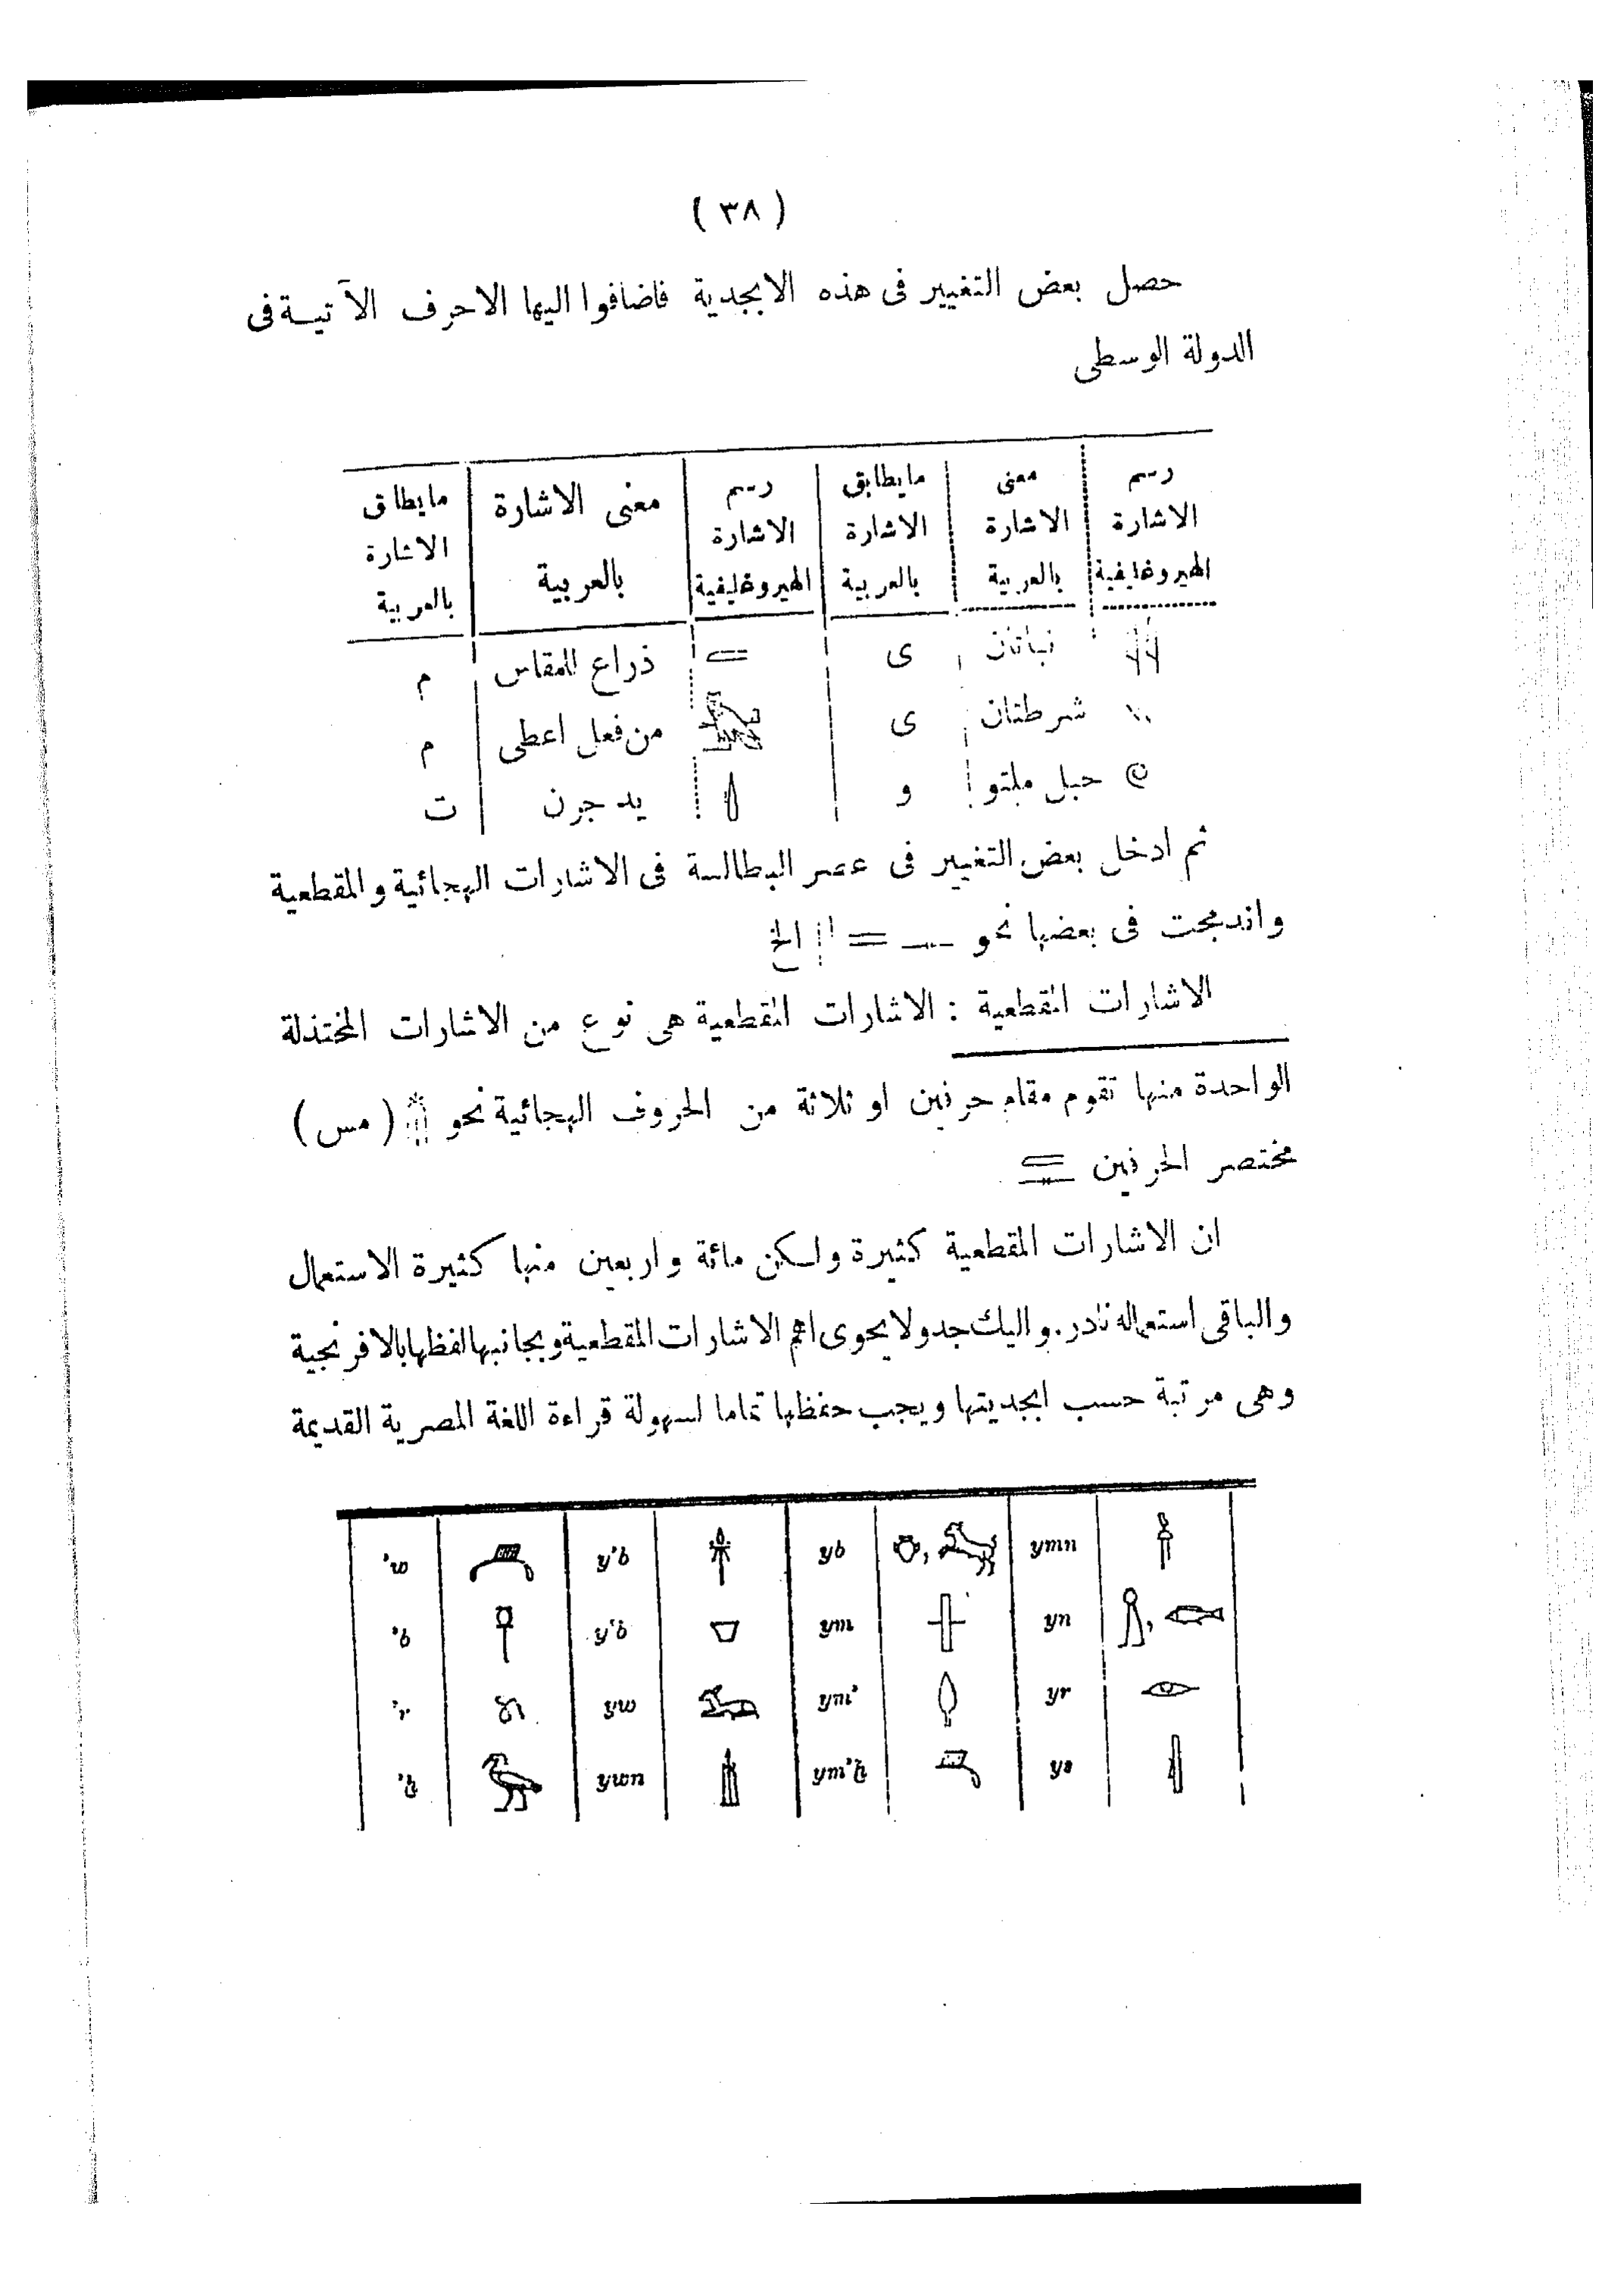 ( ٣٨ )
حصل بعض التغيير فى هذه الابجدية فاضافوا اليها الاحرف الآتيــة فى
الدولة الوسطى
رسم الاشارة الهيروغليفية | معنى الاشارة بالعربية | مايطابق الاشارة بالعربية | رسم الاشارة الهيروغليفية | معنى الاشارة بالعربية | مايطاق الاشارة بالعربية
نباتان | ى | ذراع للمقاس | م
شرطتان | ى | من فعل اعطى | م
حبل ملتو | و | يد جرن | ت
ثم ادخل بعض التغيير فى عصر البطالسة فى الاشارات الهجائية والمقطعية
واندمجت فى بعضها نحو الخ
الاشارات المقطعية : الاشارات المقطعية هى نوع من الاشارات المختذلة
الواحدة منها تقوم مقام حرفين او ثلاثة من الحروف الهجائية نحو ( مس )
مختصر الحرفين
ان الاشارات المقطعية كثيرة ولكن مائة واربعين منها كثيرة الاستعمال
والباقى استعماله نادر. واليك جدولا يحوى اهم الاشارات المقطعية وبجانبها لفظها بالافرنجية
وهى مرتبة حسب ابجديتها ويجب حفظها تماما لسهولة قراءة اللغة المصرية القديمة
'w | y'b | yb | ymn
'b | y'b | ym | yn
'r | yw | ym' | yr
'ḫ | ywn | ym'ḫ | ys